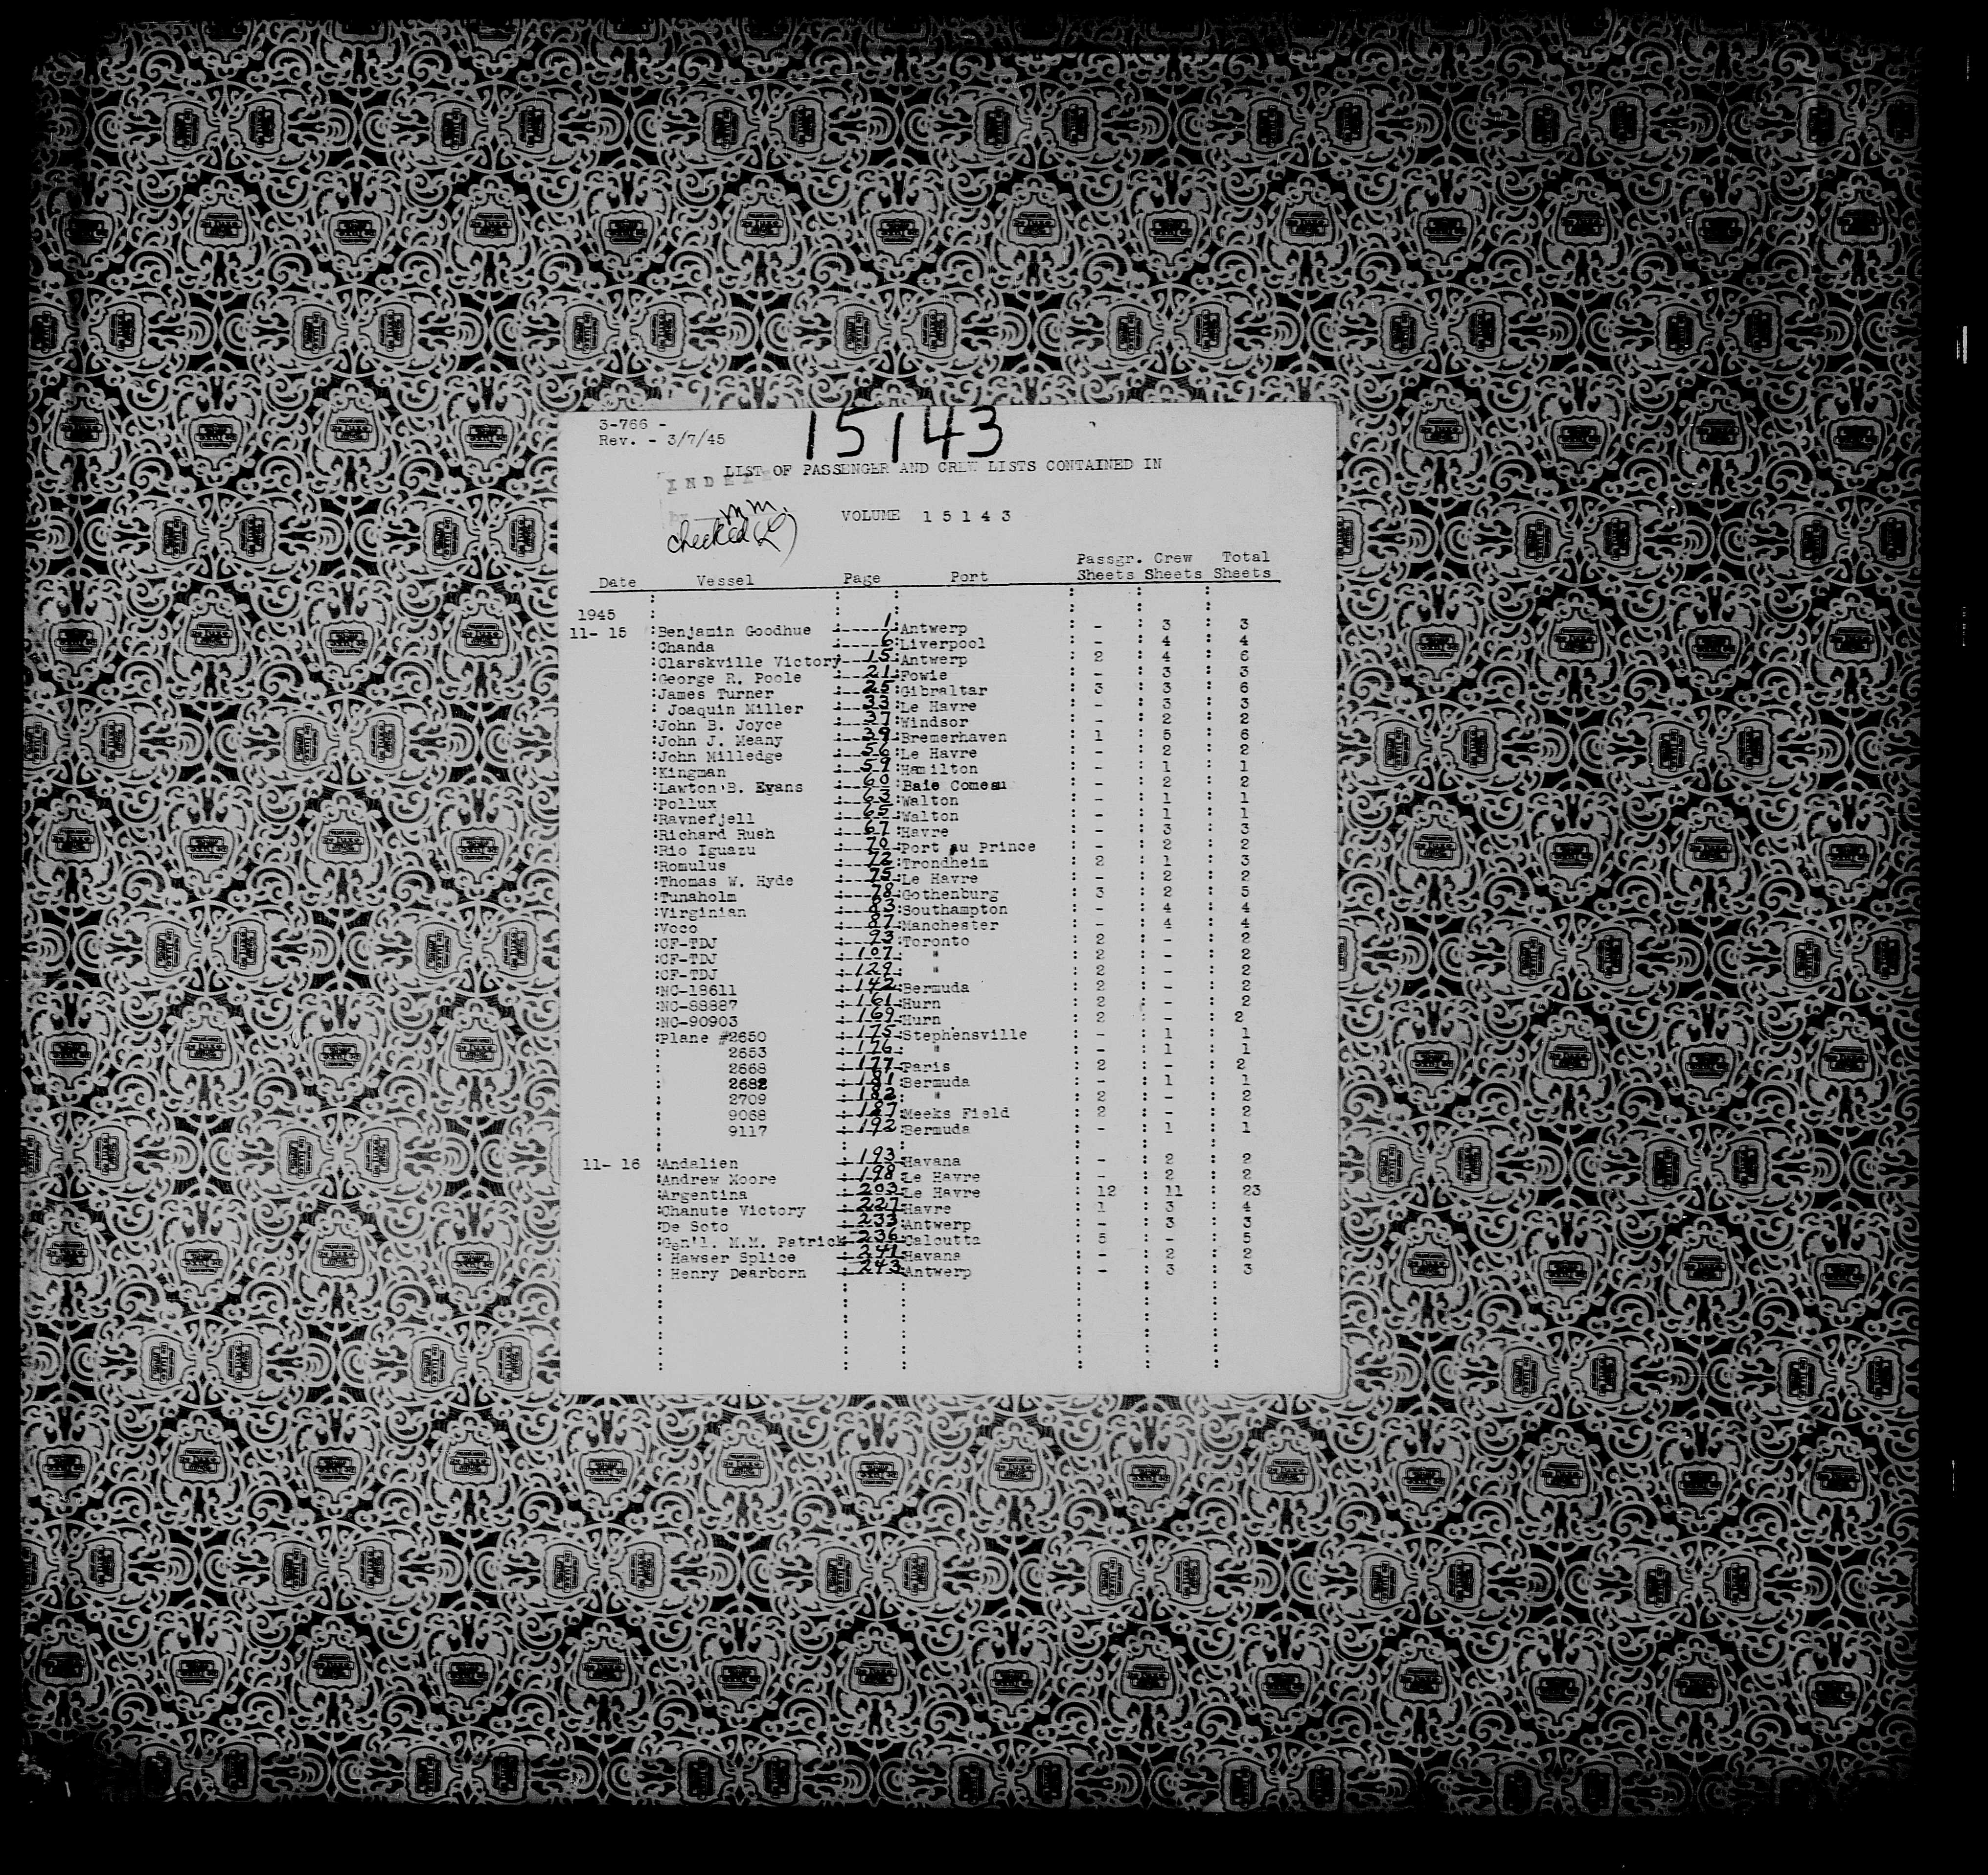 15143
3-766 -
Rev. - 3/7/45
LIST OF PASSENGER AND CREW LISTS CONTAINED IN
INDEX
mm.
VOLUME 15143
checked
Passgr. Crew Total
Date Vessel Page Port Sheets Sheets Sheets
1945
11- 15 :Benjamin Goodhue :-----1:Antwerp : - : 3 : 3
:Chanda :----6:Liverpool : - : 4 : 4
:Clarskville Victory--15:Antwerp : 2 : 4 : 6
:George R. Poole :---21:Fowie : - : 3 : 3
:James Turner :---25:Gibraltar : 3 : 3 : 6
: Joaquin Miller :---33:Le Havre : - : 3 : 3
:John B. Joyce :---37:Windsor : - : 2 : 2
:John J. Meany :---39:Bremerhaven : 1 : 5 : 6
:John Milledge :---56:Le Havre : - : 2 : 2
:Kingman :---59:Hamilton : - : 1 : 1
:Lawton B. Evans :---60:Baie Comeau : - : 2 : 2
:Pollux :---63:Walton : - : 1 : 1
:Ravnefjell :---65:Walton : - : 1 : 1
:Richard Rush :---67:Havre : - : 3 : 3
:Rio Iguazu :---70:Port au Prince : - : 2 : 2
:Romulus :---72:Trondheim : 2 : 1 : 3
:Thomas W. Hyde :---75:Le Havre : - : 2 : 2
:Tunaholm :---78:Gothenburg : 3 : 2 : 5
:Virginian :---83:Southampton : - : 4 : 4
:Voco :---87:Manchester : - : 4 : 4
:CF-TDJ :---93:Toronto : 2 : - : 2
:CF-TDJ :--107: " : 2 : - : 2
:CF-TDJ :--129: " : 2 : - : 2
:NC-18611 :--142:Bermuda : 2 : - : 2
:NC-88887 :--161:Hurn : 2 : - : 2
:NC-90903 :--169:Hurn : 2 : - : 2
:Plane #2650 :--175:Stephensville : - : 1 : 1
: 2653 :--176: " : - : 1 : 1
: 2668 :--177:Paris : 2 : - : 2
: 2682 :--181:Bermuda : - : 1 : 1
: 2709 :--182: " : 2 : - : 2
: 9068 :--187:Meeks Field : 2 : - : 2
: 9117 :--192:Bermuda : - : 1 : 1
11- 16 :Andalien :--193:Havana : - : 2 : 2
:Andrew Moore :--198:Le Havre : - : 2 : 2
:Argentina :--203:Le Havre : 12 : 11 : 23
:Chanute Victory :--227:Havre : 1 : 3 : 4
:De Soto :--233:Antwerp : - : 3 : 3
:Gen'l. M.M. Patrick--236:Calcutta : 5 : - : 5
: Hawser Splice :--241:Havana : - : 2 : 2
: Henry Dearborn :--243:Antwerp : - : 3 : 3